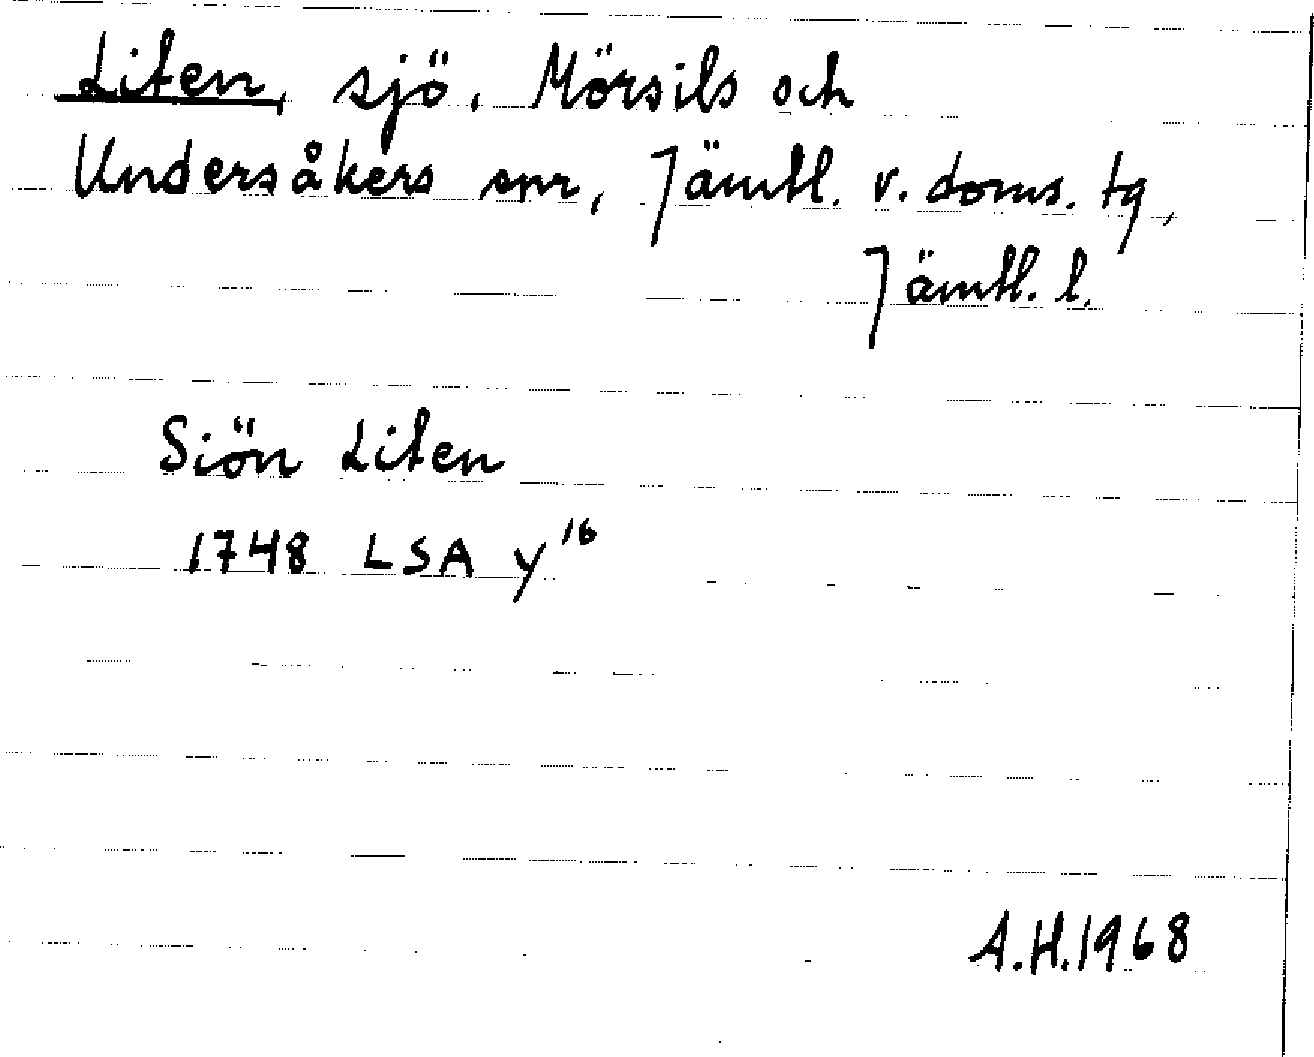 Liten, sjö, Mörsils och
Undersåkers snr, Jämtl. v. doms. tg,
Jämtl. l.
Siön Liten
1748 LSA y 16
A.H.1968